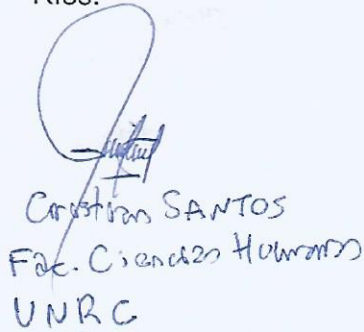 Cristian SANTOS
Fac. Ciencias Humanas
UNRC